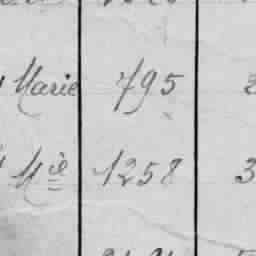 Marie 795
Mie 1258 3